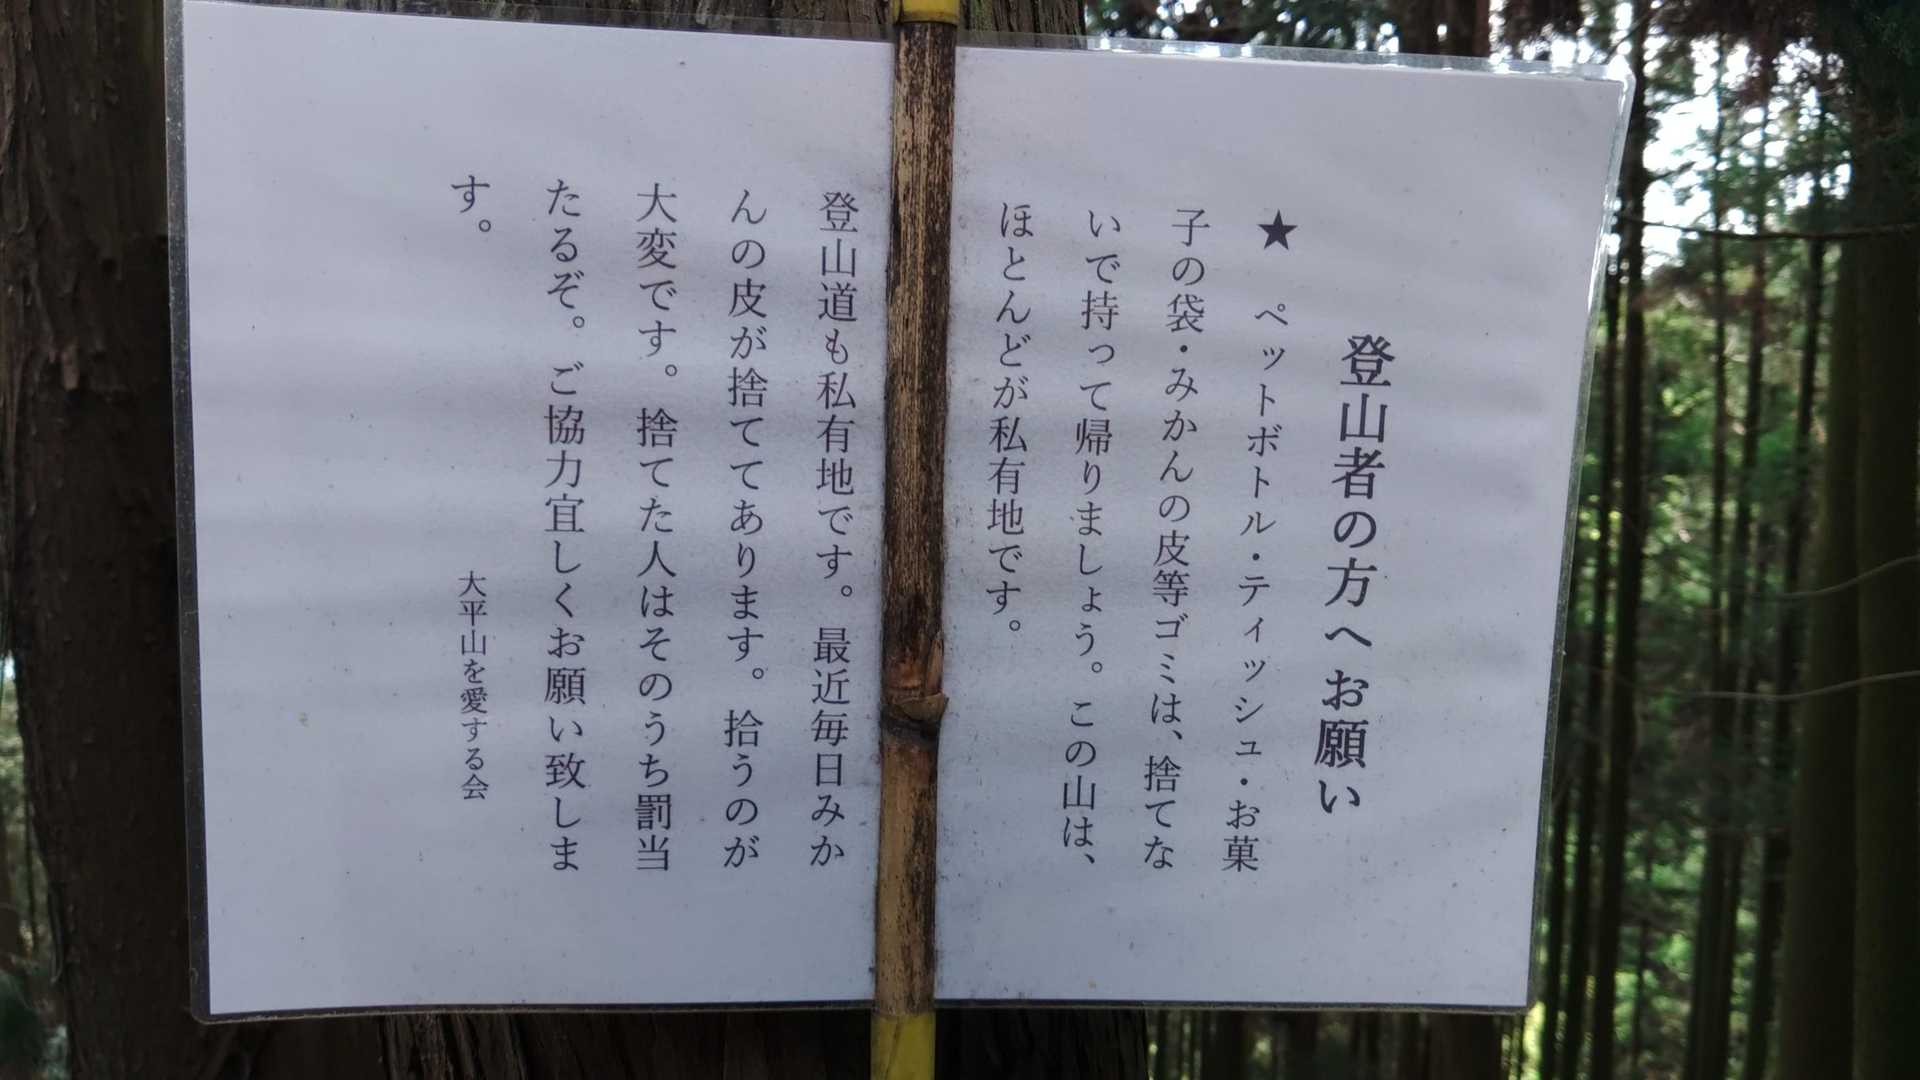 登山者の方へお願い
★ ペットボトル・ティッシュ・お菓
子の袋・みかんの皮等ゴミは、捨てな
いで持って帰りましょう。この山は、
ほとんどが私有地です。
登山道も私有地です。最近毎日みか
んの皮が捨ててあります。拾うのが
大変です。捨てた人はそのうち罰当
たるぞ。ご協力宜しくお願い致しま
す。
大平山を愛する会